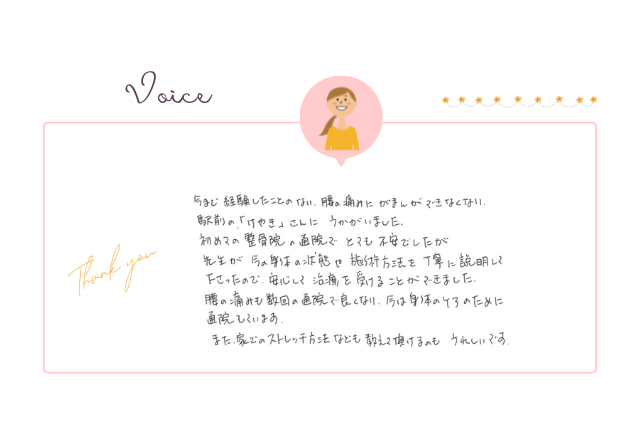 Voice
今まで経験したことのない、腰の痛みにがまんができなくなり、
駅前の「けやき」さんにうかがいました。
初めての整骨院の通院でとても不安でしたが
先生が今の身体の状態や施術方法を丁寧に説明して
下さったので、安心して治療を受けることができました。
腰の痛みも数回の通院で良くなり、今は身体のケアのために
通院しています。
また、家でのストレッチ方法なども教えて頂けるのもうれしいです。
Thank you